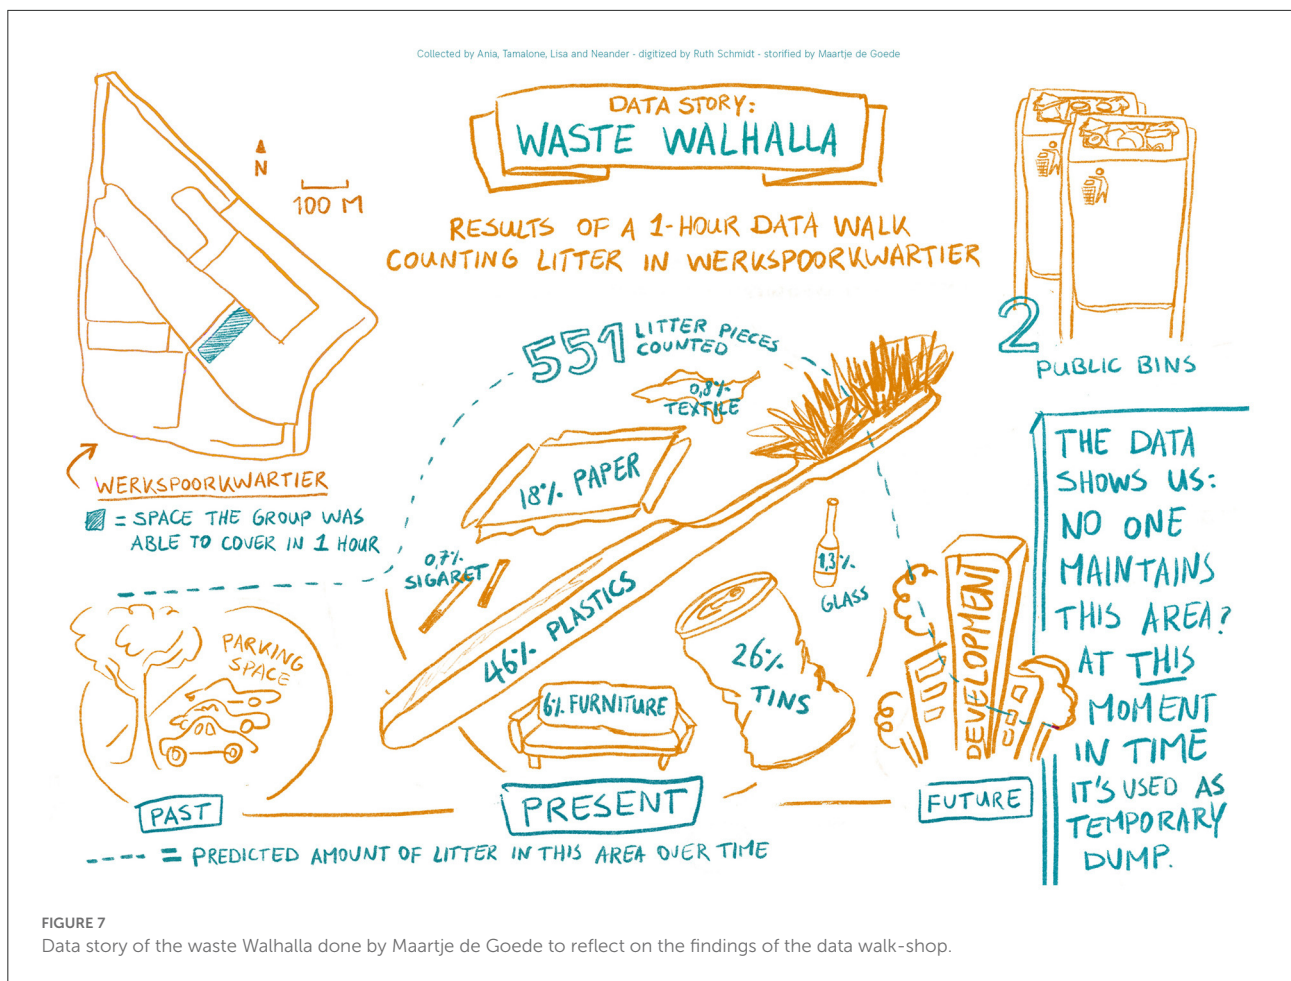 Collected by Ania, Tamalone, Lisa and Neander - digitized by Ruth Schmidt - storified by Maartje de Goede
DATA STORY:
WASTE WALHALLA
RESULTS OF A 1-HOUR DATA WALK
COUNTING LITTER IN WERKSPOORKWARTIER
N
100 M
WERKSPOORKWARTIER
= SPACE THE GROUP WAS
ABLE TO COVER IN 1 HOUR
2
PUBLIC BINS
551 LITTER PIECES
COUNTED
0,8%
TEXTILE
18% PAPER
0,7%
SIGARET
46% PLASTICS
1,3%
GLASS
26%
TINS
6% FURNITURE
PARKING
SPACE
DEVELOPMENT
PAST
PRESENT
FUTURE
---- = PREDICTED AMOUNT OF LITTER IN THIS AREA OVER TIME
THE DATA
SHOWS US:
NO ONE
MAINTAINS
THIS AREA?
AT THIS
MOMENT
IN TIME
IT'S USED AS
TEMPORARY
DUMP.
FIGURE 7
Data story of the waste Walhalla done by Maartje de Goede to reflect on the findings of the data walk-shop.